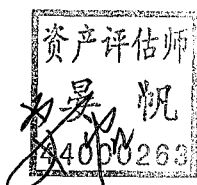 资产评估师
晏帆
44000263